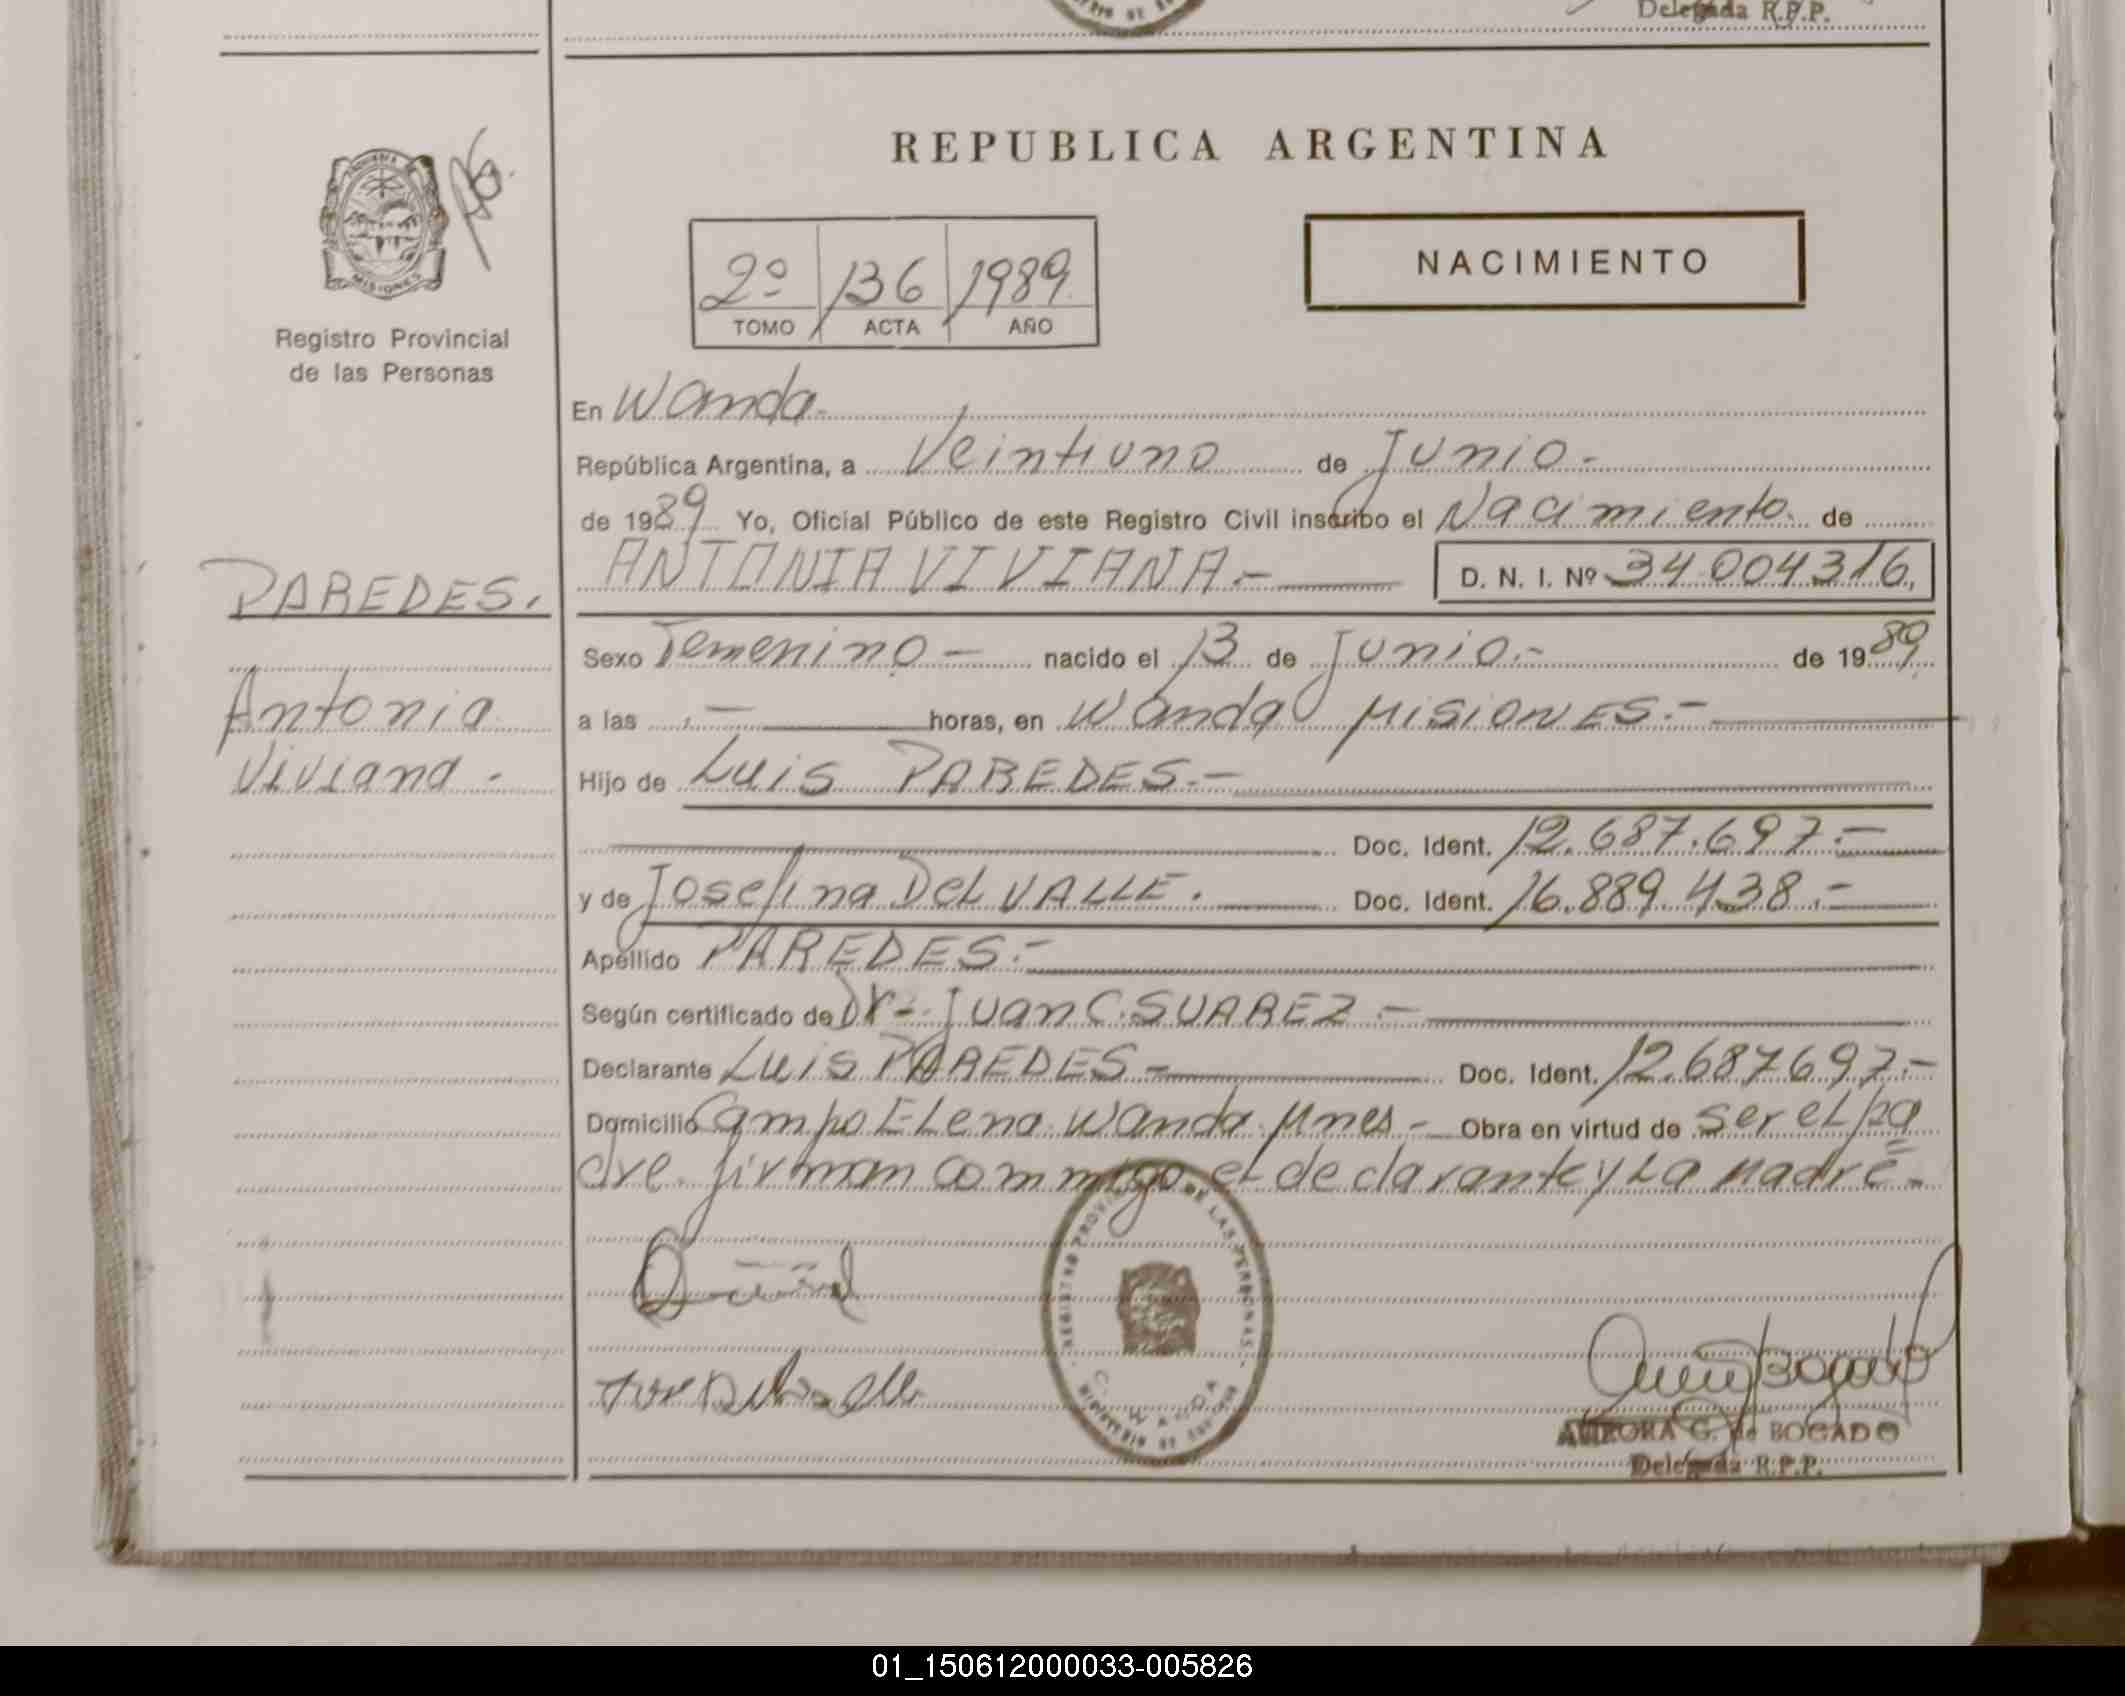 Delegada R.P.P.
REPUBLICA ARGENTINA
MISIONES
Registro Provincial
de las Personas
2º 136 1989
TOMO ACTA AÑO
NACIMIENTO
En Wanda
República Argentina, a Veintiuno de Junio.-
de 1989 Yo, Oficial Público de este Registro Civil inscribo el Nacimiento de
ANTONIA VIVIANA.- D. N. I. Nº 34.004316,
PAREDES.
Antonia
Viviana.-
Sexo Femenino - nacido el 13 de Junio.- de 1989
a las - horas, en Wanda MISIONES.-
Hijo de Luis PAREDES.-
Doc. Ident. 12.687.697.-
y de Josefina Del VALLE. Doc. Ident. 16.889.438.-
Apellido PAREDES.-
Según certificado de Dr.- Juan C. SUAREZ.-
Declarante Luis PAREDES - Doc. Ident. 12.687697.-
Domicilio Campo Elena Wanda Mnes - Obra en virtud de ser el pa
dre. firman conmigo el declarante y La Madre.-
REGISTRO PROVINCIAL DE LAS PERSONAS
WANDA
MINISTERIO DE
AURORA G. de BOGADO
Delegada R.P.P.
01_150612000033-005826